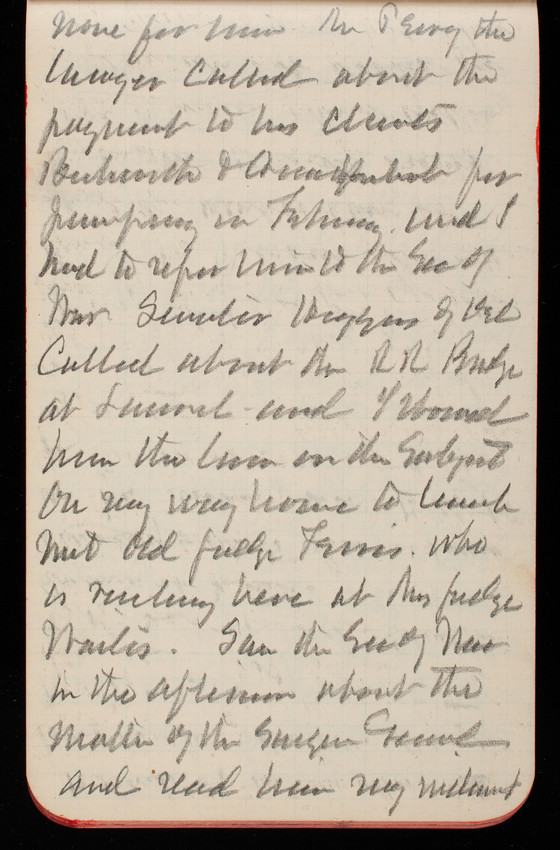 none for him Mr Perry the
lawyer called about the
payment to his clients
for
in February and I
had to refer him to the Sec of
War Senator Higgins of Del
Called about the RR Bridge
at and I showed
him the law on the Subject
On my way home to lunch
met Old Judge who
is visiting here at Mrs Judge
Saw the Sec of War
in the afternoon about the
matter of the Surgeon General
and read him my